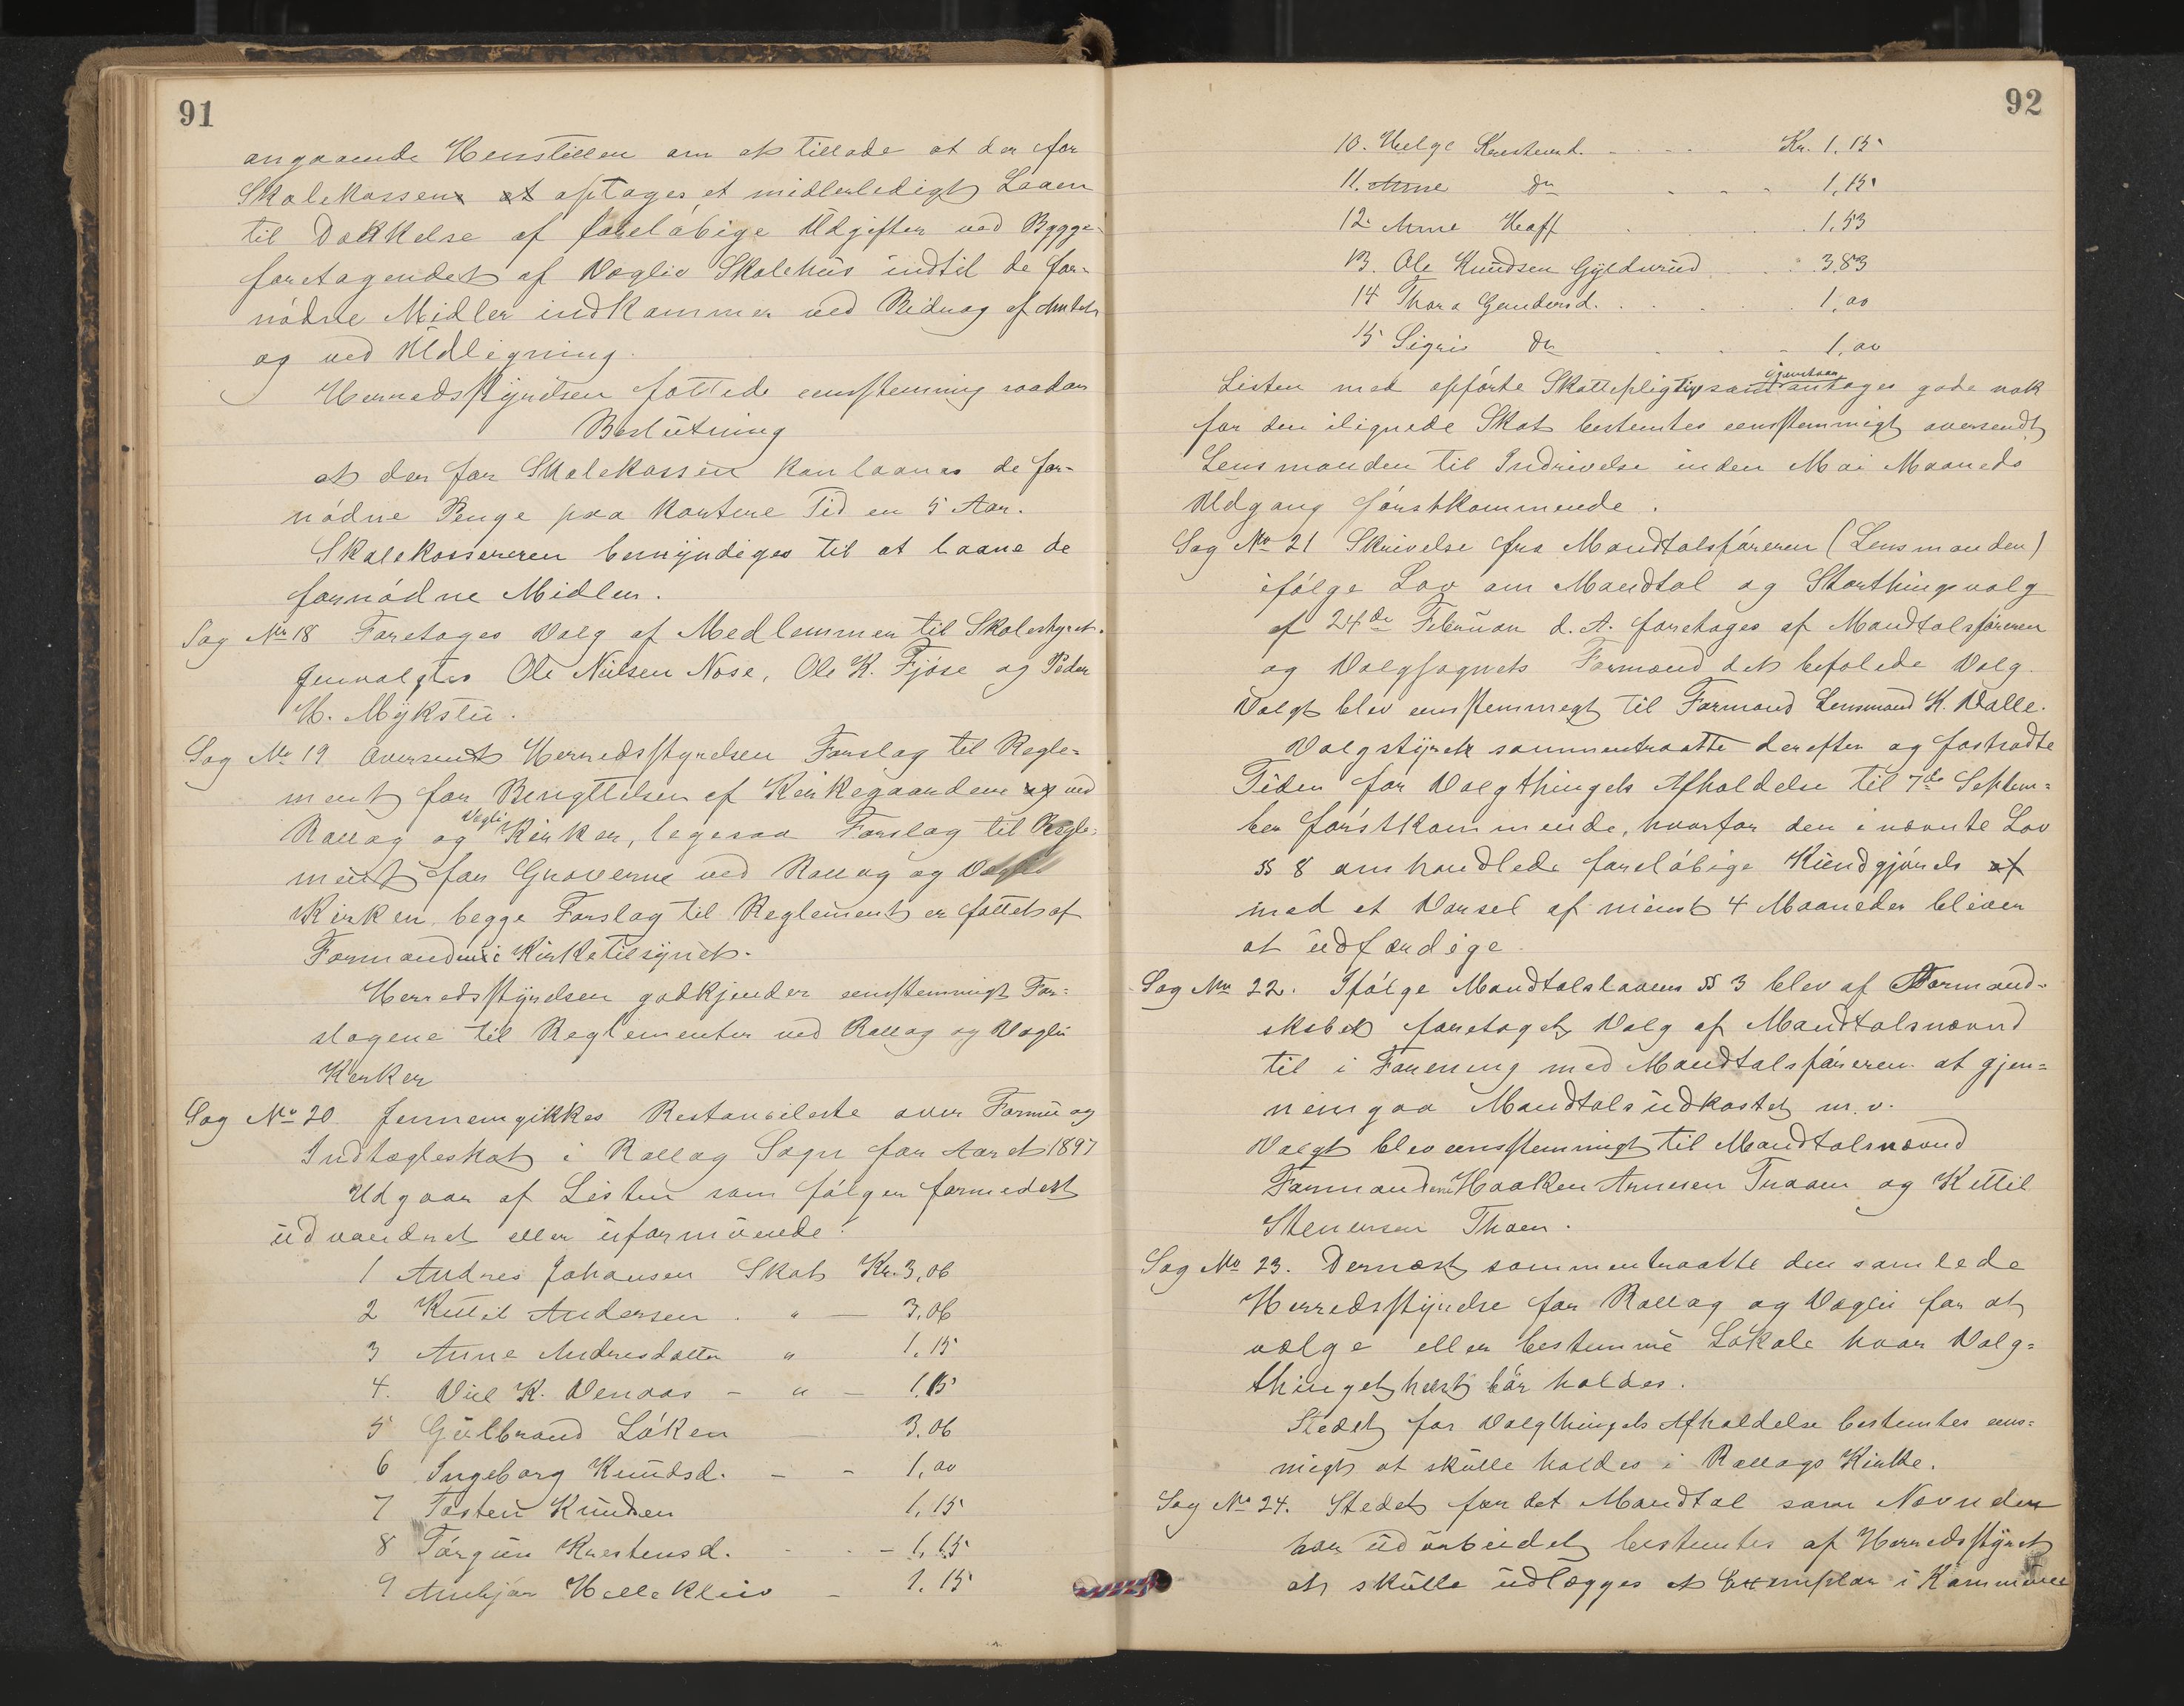 91
angaaende Henstillen om at tillade at der for
Skolekassen at optages et midlerledigt Laaen
til Dækkelse af foreløbige Udgifter ved Bygge-
foretagendet af Væglie Skolehus indtil de for-
nødne Midler indkommer ved Bidrag af Amtet
og ved Udligning.
Herredsstyrelsen fattede eensstemmig saadan
Beslutning
at der for Skolekassen kan laanes de for-
nødne Penge paa kortere Tid en 5 Aar.
Skolekassereren bemyndiges til at laane de
fornødne Midler.
Sag No 18 Foretoges Valg af Medlemmer til Skolestyret.
Jenvalgtes Ole Nilsen Nose, Ole K. Fjøse og Peder
H. Mykstu.
Sag No 19 Oversendt Herredsstyrelsen Forslag til Regle=
ment for Benyttelsen af Kirkegaardene og ved
Rollag og Vegli Kirker, legesaa Forslag til Regle-
ment for Graverne ved Rollag og Vegli
Kirken begge Forslag til Reglement er fattet af
Formændene i Kirketilsynet.
Herredsstyrelsen godkjender eensstemmigt For=
slagene til Reglementer ved Rollag og Væglii
Kerker
Sag No 20. Jennemgikkes Restanceliste over Formu og
Indtægteskat i Rollag Sogn for Aaret 1897
Udgaar af Listen som følger formedelst
udvandret eller uformuende:
1 Andres Johansen Skat Kr. 3,06
2 Kittil Andersen . " — 3,06
3 Anne Andresdatter " 1,15
4. Viel K. Venaas – " – 1,15
5 Gulbrand Løken 3.06
6 Ingeborg Knudsd. – – 1,00
7 Tosten Knudsen 1,15
8 Tørgun Kirstensd. - . - 1,15
9 Anbjør Hellekleiv – 1,15
92
10. Helge Kirstensd. - . . . Kr. 1,15
11. Anne do . . . 1,15
12. Arne Hoff . . . 1,53
13. Ole Knudsen Gyldurud . . 3,83
14 Thora Gundersd. . . . 1,00
15 Sigri do . . . 1,00
Listen med opførte Skattepligtige som igjenstaar antages gode nok
for den ilignede Skat bestemtes eensstemmigt oversendt
Lensmanden til Indrivelse inden Mai Maaneds
Udgang førstkommende.
Sag No 21 Skrivelse fra Mandtalsføreren (Lensmanden)
ifølge Lov om Mandtal og Storthingsvalg
af 24de Februar d. A. foretoges af Mandtalsføreren
og Valgsognets Formænd det befalede Valg.
Valgt blev eensstemmegt til Formand Lensmand K. Valle.
Valgstyret sammentraatte derefter og fastsatte
Tiden for Valgthingets Afholdelse til 7de Septem=
ber førstkommende, hvorfor den i nævnte Lov
§§ 8 omhandlede foreløbige Kundgjørels af
med et Varsel af minst 4 Maaneder bliver
at udfærdige.
Sag No 22. Ifølge Mandtalslovens §§ 3 blev af Formand-
skabet foretaget Valg af Mandtalsnævnd
til i Forening med Mandtalsføreren at gjen=
nemgaa Mandtalsudkastet m. v.
Valgt blev eensstemmigt til Mandtalsnævnd
Formændene Haaken Arnesen Traaen og Kittil
Stenersen Thoen.
Sag No 23. Dernæst sammentraatte den samlede
Herredsstyrelse for Rollag og Væglii for at
vælge eller bestemme Lokale hvor Valg=
thinget helst bør holdes.
Stedet for Valgthingets Afholdelse bestemtes eens=
migt at skulle holdes i Rollags Kirke.
Sag No 24. Stedet for det Mandtal som Nævnden
har udarbeidet bestemtes af Herredsstyret
at skulle udlægges et Exemplar i Kommune